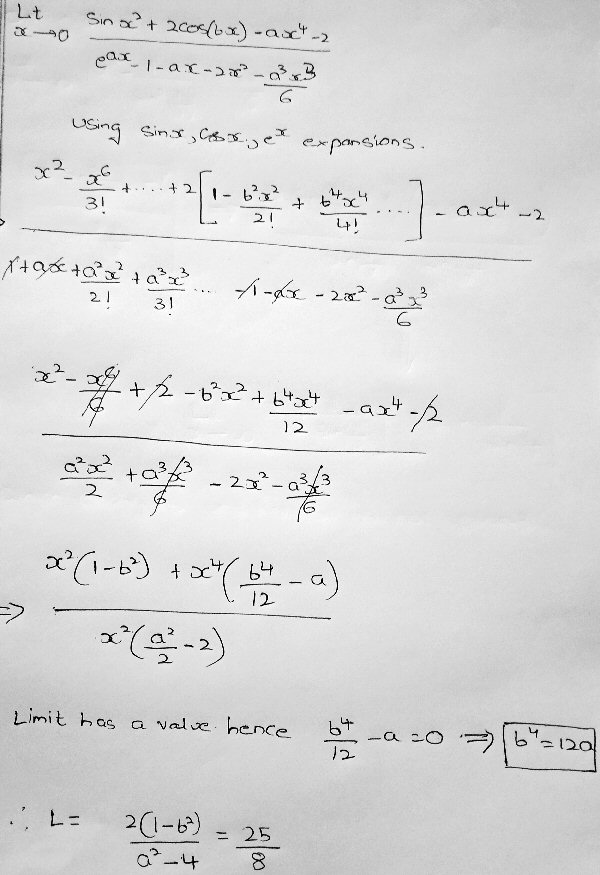 Lt x→0 (sin x² + 2cos(bx) - ax⁴ - 2) / (e^(ax) - 1 - ax - 2x² - a³x³/6)
using sinx, cosx, eˣ expansions.
(x² - x⁶/3! + ..... + 2[1 - b²x²/2! + b⁴x⁴/4! ....] - ax⁴ - 2) / (1 + ax + a²x²/2! + a³x³/3! ... - 1 - ax - 2x² - a³x³/6)
(x² - x⁶/6 + 2 - b²x² + b⁴x⁴/12 - ax⁴ - 2) / (a²x²/2 + a³x³/6 - 2x² - a³x³/6)
⇒ (x²(1-b²) + x⁴(b⁴/12 - a)) / (x²(a²/2 - 2))
Limit has a value hence b⁴/12 - a = 0 ⇒ b⁴ = 12a
∴ L = 2(1-b²)/(a²-4) = 25/8